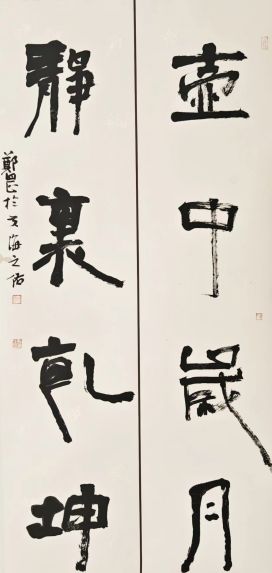 壺中歲月
靜裏乾坤
鄭
於
海之